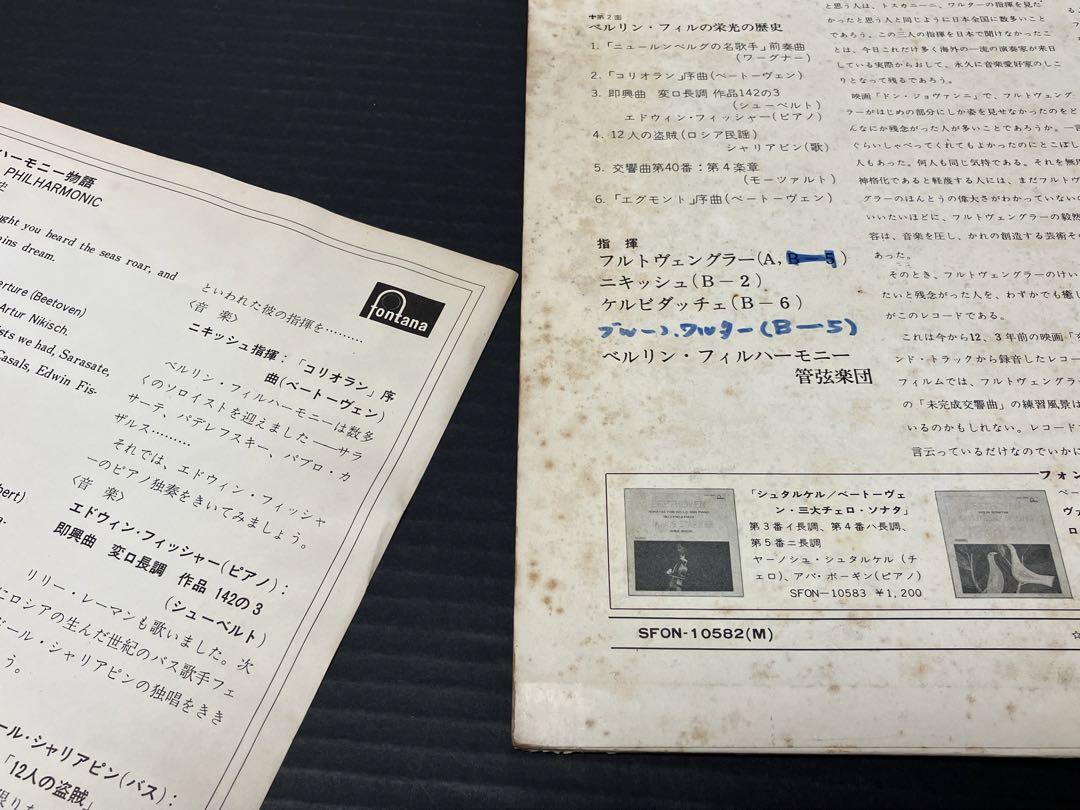 ハーモニー物語
PHILHARMONIC
史
ught you heard the seas roar, and
ains dream.
erture (Beetoven)
Artur Nikisch.
sts we had, Sarasate,
Casals, Edwin Fis-
bert)
といわれた彼の指揮を………
〈音 楽〉
ニキッシュ指揮：「コリオラン」序
曲(ベートーヴェン)
ベルリン・フィルハーモニーは数多
くのソロイストを迎えました――サラ
サーテ・パデレフスキー、パブロ・カ
ザルス………
それでは、エドウィン・フィッシャ
ーのピアノ独奏をきいてみましょう。
〈音 楽〉
エドウィン・フィッシャー(ピアノ)：
即興曲 変ロ長調 作品 142の3
(シューベルト)
リリー・レーマンも歌いました。次
にロシアの生んだ世紀のバス歌手フェ
ドール・シャリアピンの独唱をきき
う。
ール・シャリアピン(バス)：
「12人の盗賊」
限りな
fontana
✝第2面
ベルリン・フィルの栄光の歴史
1.「ニュールンベルグの名歌手」前奏曲
(ワーグナー)
2.「コリオラン」序曲(ベートーヴェン)
3. 即興曲 変ロ長調 作品142の3
(シューベルト)
エドウィン・フィッシャー(ピアノ)
4. 12人の盗賊(ロシア民謡)
シャリアピン(歌)
5. 交響曲第40番：第4楽章
(モーツァルト)
6.「エグモント」序曲(ベートーヴェン)
指 揮
フルトヴェングラー(A, B−5)
ニキッシュ(B−2)
ケルビダッチェ(B−6)
ブルーノ.ワルター(B−5)
ベルリン・フィルハーモニー
管弦楽団
と思う人は、トスカニーニ、ワルターの指揮を見た
かったと思う人と同じように日本全国に数多いこと
であろう。この三人の指揮を日本で聞けなかったこ
とは、今日これだけ多く海外の一流の演奏家が来日
している実際からおして、永久に音楽愛好家のしこ
りとなって残るであろう。
映画「ドン・ジョヴァンニ」で、フルトヴェング
ラーがはじめの部分にしか姿を見せなかったのをど
んなにか残念がった人が多いことであろうか。一言
ぐらいしゃべってくれてもよかったのにとこぼし
人もあった。何人も同じ気持である。それを無
神格化であると軽蔑する人には、まだフルトヴ
グラーのほんとうの偉大さがわかっていないの
いいたいほどに、フルトヴェングラーの毅然
容は、音楽を圧し、かれの創造する芸術そ
あった。
そのとき、フルトヴェングラーのけい
たいと残念がった人を、わずかでも癒
がこのレコードである。
これは今から12、3年前の映画「
ンド・トラックから録音したレコー
フィルムでは、フルトヴェングラ
の「未完成交響曲」の練習風景は
いるのかもしれない。レコード
言云っているだけなのでいかに
フォン
「シュタルケル／ベートーヴェ
ン・三大チェロ・ソナタ」
第3番イ長調、第4番ハ長調、
第5番ニ長調
ヤーノシュ・シュタルケル(チ
ェロ)、アバ・ボーギン(ピアノ)
SFON−10583 ¥1,200
SFON-10582(M)